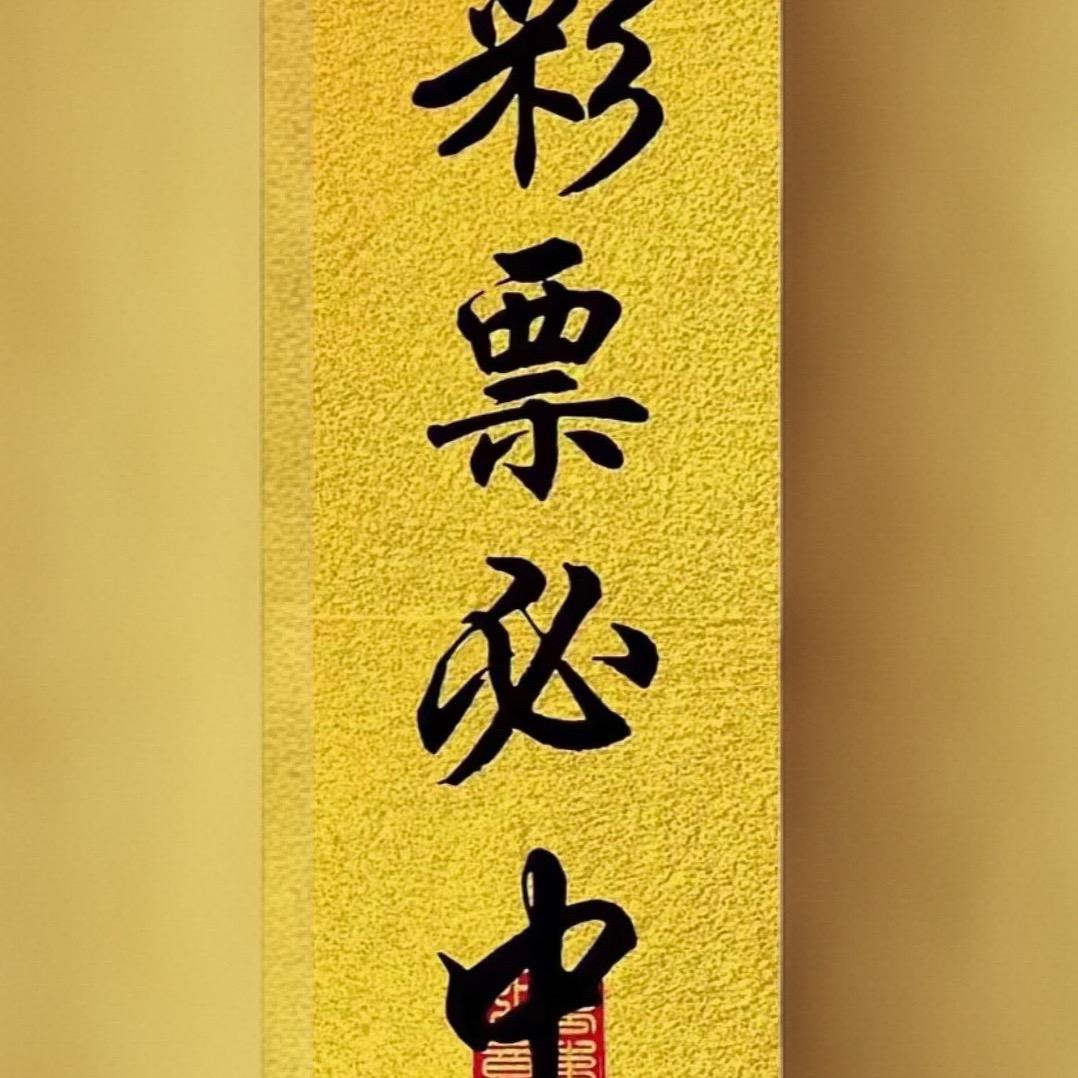 彩票必中